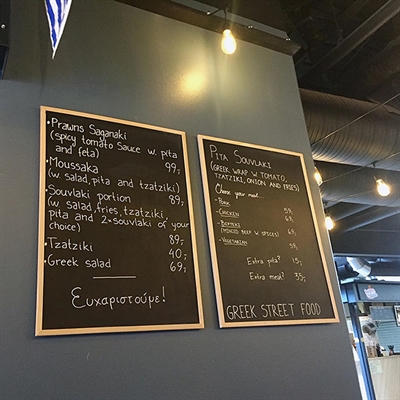 • Prawns Saganaki
(spicy tomato sauce w. pita
and feta) 99,-
• Moussaka
(w. salad, pita and tzatziki) 89,-
• Souvlaki portion
(w. salad, fries, tzatziki,
pita and 2 souvlaki of your
choice) 89,-
• Tzatziki 40,-
• Greek salad 69,-
Ευχαριστούμε!
PITA SOUVLAKI
(GREEK WRAP W. TOMATO,
TZATZIKI, ONION AND FRIES)
Choose your meat...
- PORK 59,-
- CHICKEN 69,-
- BIFTEKI
(MINCED BEEF W. SPICES) 69,-
- VEGETARIAN 59,-
Extra pita? 15,-
Extra meat? 35,-
GREEK STREET FOOD